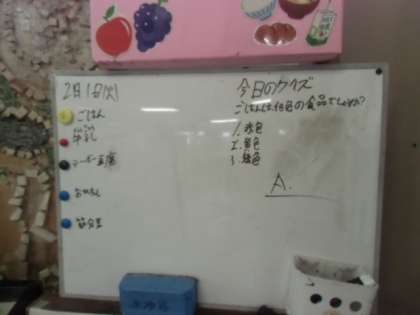 2月1日(火)
ごはん
牛乳
マーボー豆腐
節分豆
今日のクイズ
ごはんは何色の食品でしょうか?
1. 赤色
2. 黄色
3. 緑色
A.